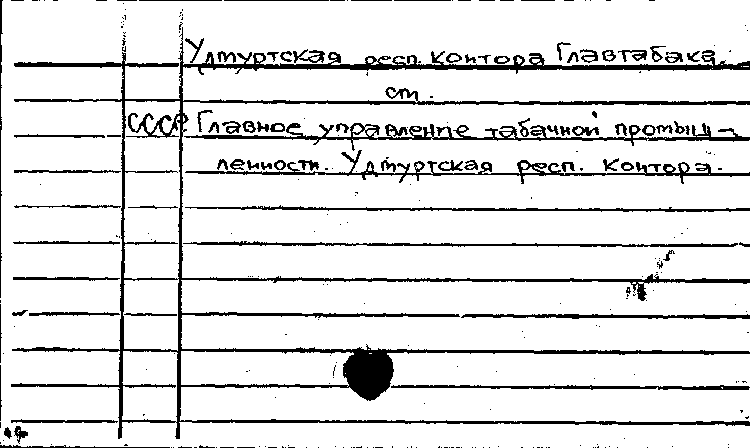 Удмуртская респ. контора Главтабака.
см.
СССР. Главное управление табачной промыш-
ленности. Удмуртская респ. контора.